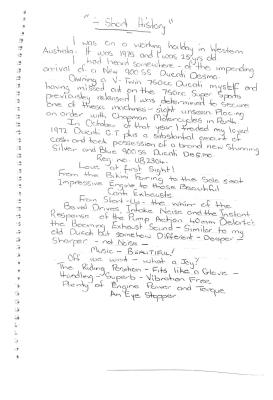 "- Short History"
I was on a working holiday in Western
Australia. It was 1975 and I was 25 yrs old
I had heard somewhere - of the impending
arrival of a New 900SS Ducati Desmo.
Owning a V-Twin 750cc Ducati myself and
having missed out on the 750cc Super Sports
previously released I was determined to secure
one of these machines - sight unseen Placing
an order with Chapman Motorcycles in Perth.
In October of that year I traded my loyal
1972 Ducati G.T plus a substantial amount of
cash and took possession of a brand new Stunning
Silver and Blue 900SS Ducati Desmo
Reg no. UB2304.
Love at First Sight!
From the Bikini Fairing to the Solo seat
Impressive Engine to those Beautiful
Conti Exhausts
From Start-Up - the whirr of the
Bevel Drives, Intake Noise and the Instant
Response of the Pump Action 40mm Delorto's
the Booming Exhaust Sound - Similar to my
old Ducati but somehow Different - Deeper -
Sharper - not Noise -
Music - BEAUTIFUL!
Off we went - what a Joy!
The Riding Position - Fits like a Glove -
Handling - Superb - Vibration Free
Plenty of Engine Power and Torque
An Eye Stopper